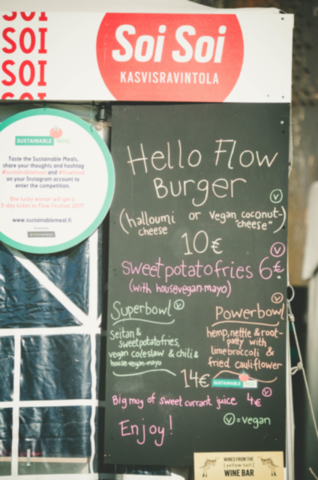 SOI
SOI
SOI
SOI
Soi Soi
KASVISRAVINTOLA
SUSTAINABLE MEAL
Taste the Sustainable Meals,
share your thoughts and hashtag
#sustainablemeal and #flowfood
on your Instagram account to
enter the competition.
the lucky winner will get a
3-day ticket to Flow Festival 2017!
www.sustainablemeal.fi
Hello Flow
Burger
V
(halloumi or vegan coconut-)
cheese "cheese"
10€
V
sweet potato fries 6€
(with house vegan mayo)
Superbowl V
Seitan &
sweet potato fries,
vegan coleslaw & chili &
house-vegan-mayo
Powerbowl V
hemp, nettle & root-
patty with
lime broccoli &
fried cauliflower
14€ SUSTAINABLE
Big mug of sweet currant juice 4€ V
V = vegan
Enjoy!
WINES FROM THE
WINE BAR